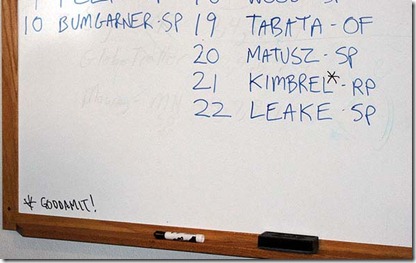 10 BUMGARNER-SP
19 TABATA-OF
20 MATUSZ-SP
21 KIMBREL*-RP
22 LEAKE-SP
* GODDAMIT!